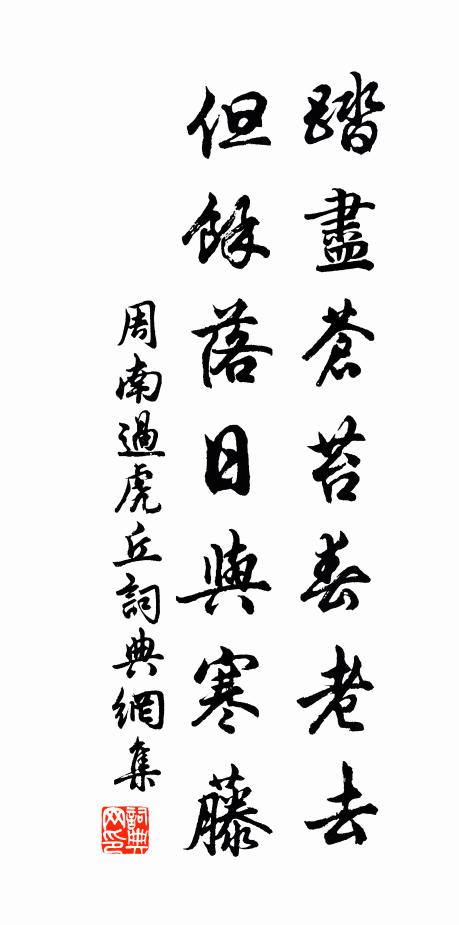 踏盡蒼苔春老去
但餘落日與寒藤
周南過虎丘詞典網集
詞典网印